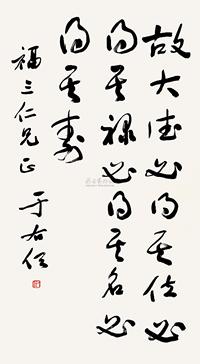 故大德必得其位必
得其禄必得其名必
得其寿
福三仁兄正
于右任